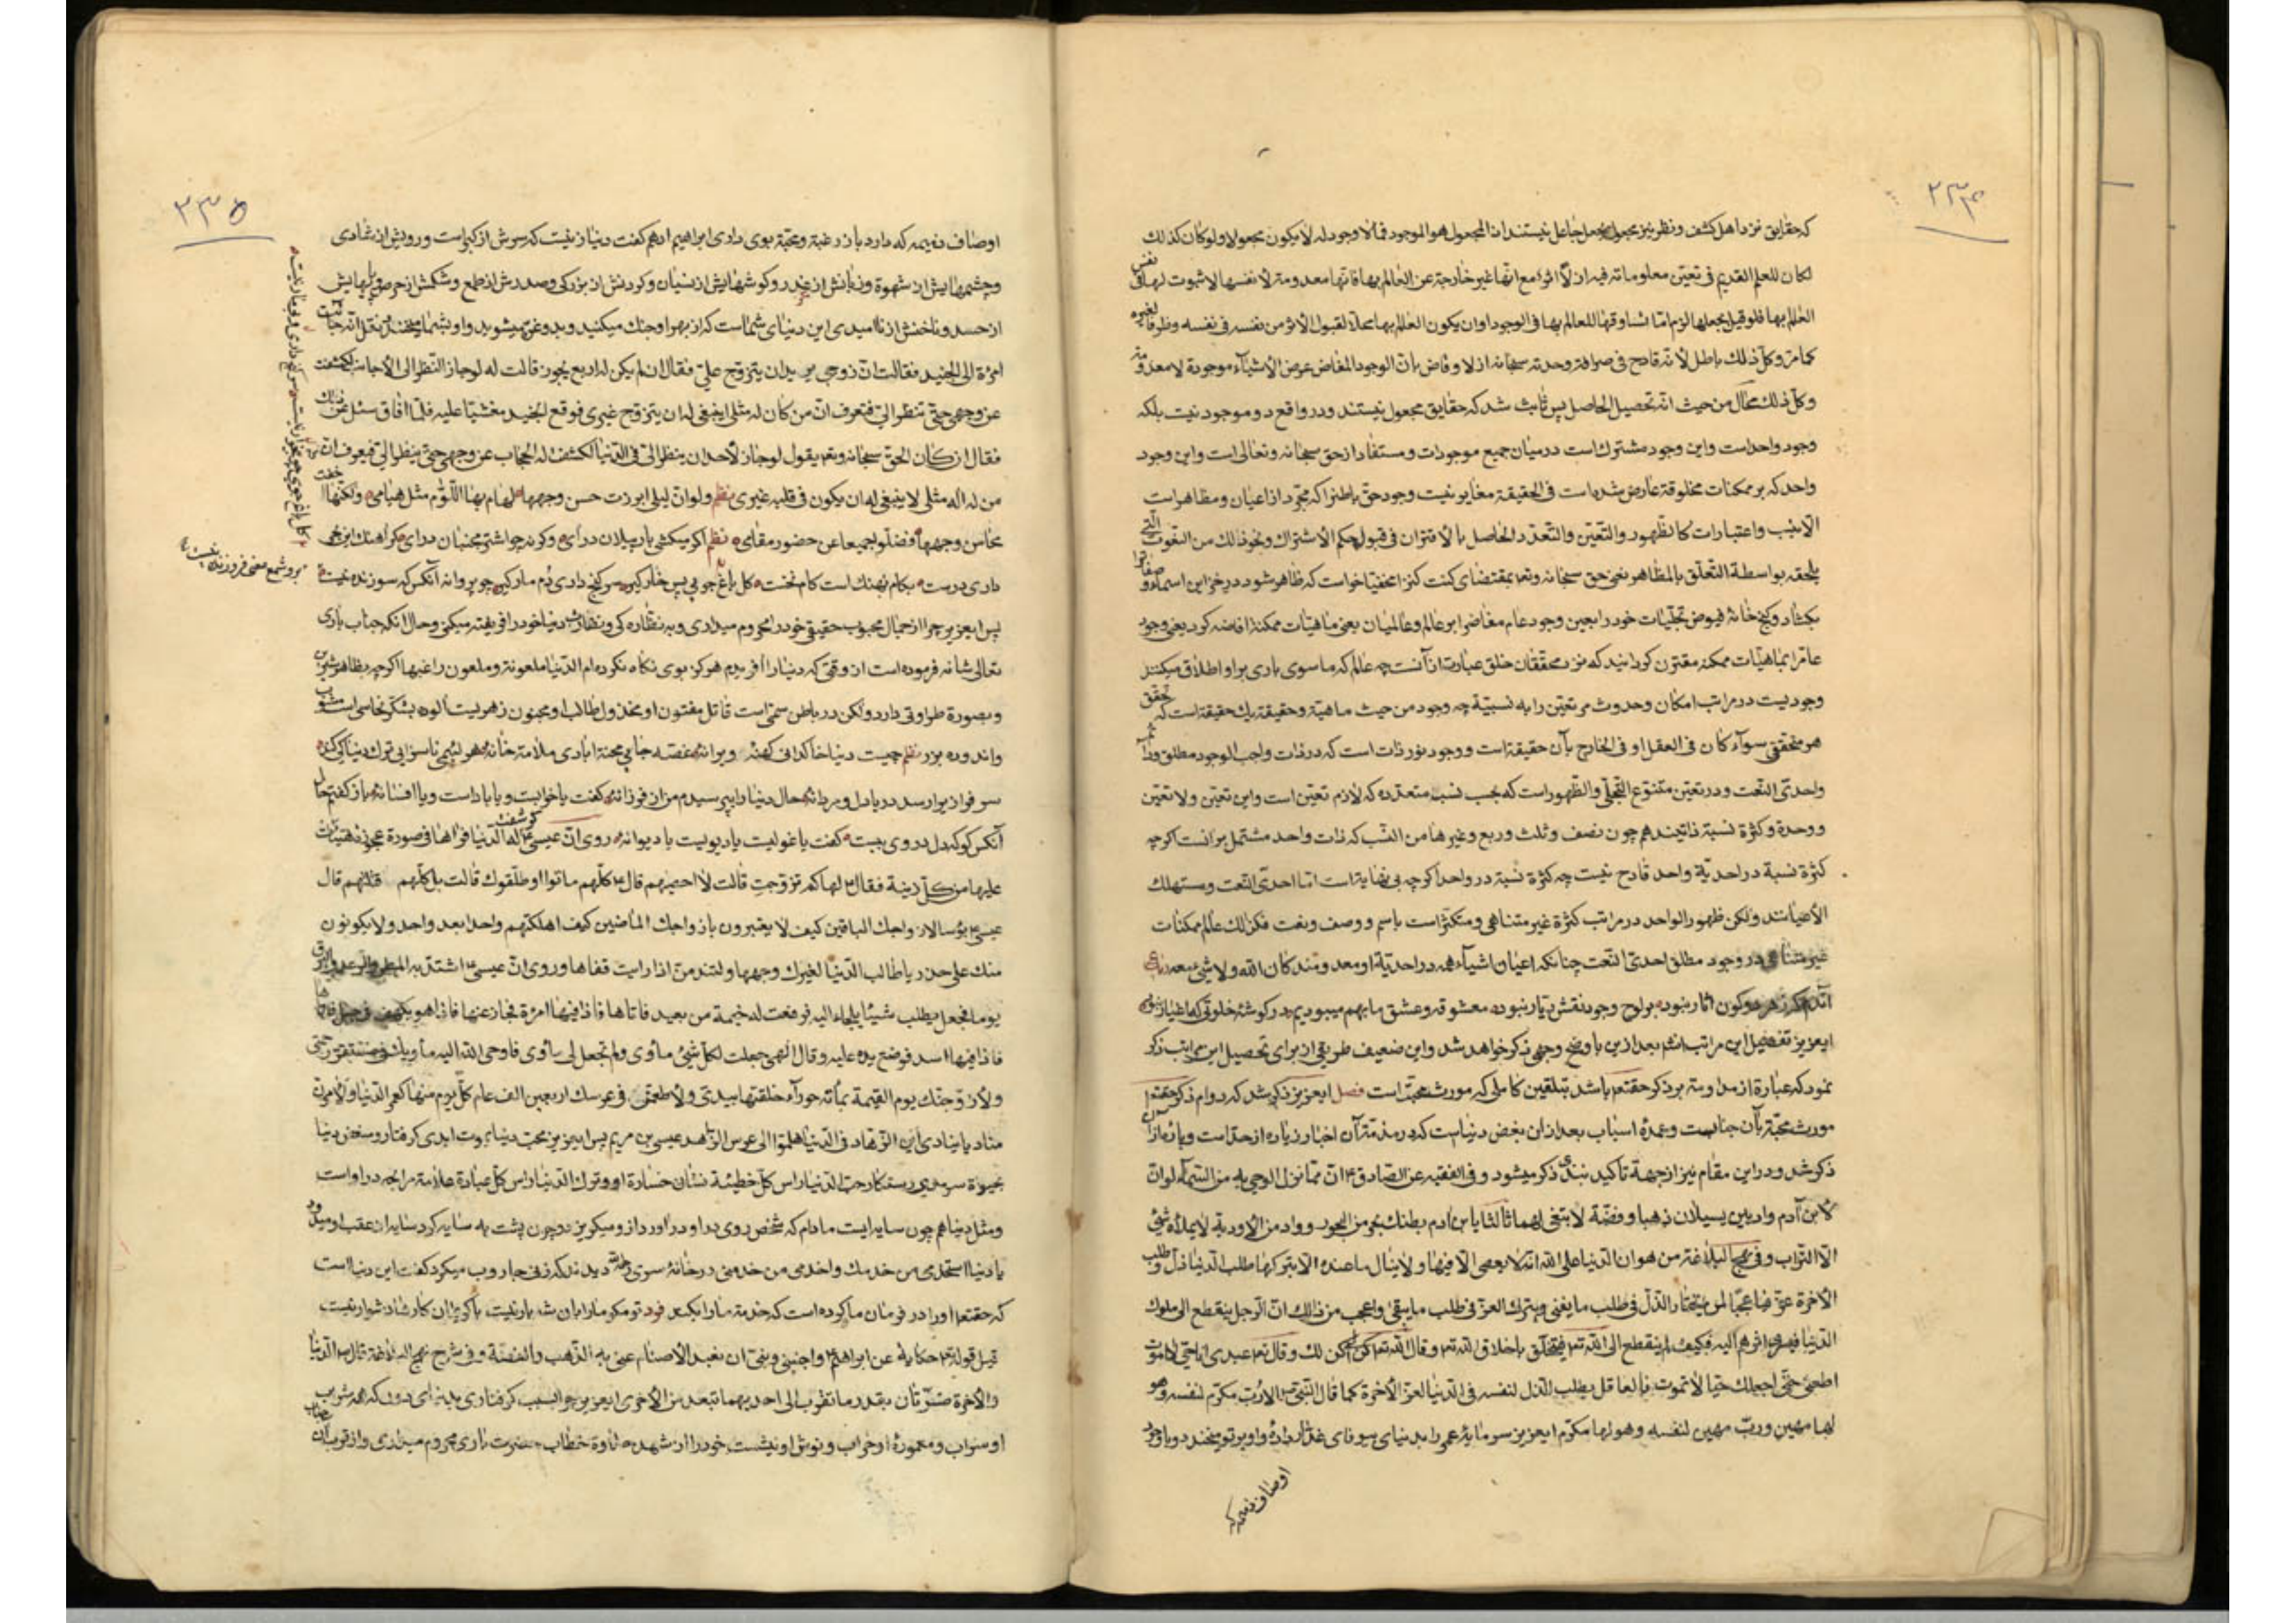 ٢٣٤
که حقایق نزد اهل کشف و نظر نیز مجعول بجعل جاعل نیستند اذ المجعول هو الموجود فما لا وجود له لا یکون مجعولا ولو کان کذلک
لکان للعلم القدیم فی تعین معلوماته فیه ازلا اثر مع انها غیر خارجة عن العالم بها فانها معدومة لانفسها لا ثبوت لها الا فی نفس
العالم بها فلو قیل بجعلها لزم اما تساوقها للعالم بها فی الوجود او ان یکون العالم بها محلا لقبول الاثر من نفسه فی نفسه وظرفا لغیره
کما مر وکل ذلک باطل لانه قادح فی صرافة وحدته سبحانه ازلا وقاض بان الوجود المفاض عرض لاشیاء موجودة لا معدومة
وکل ذلک محال من حیث انه تحصیل الحاصل پس ثابت شد که حقایق مجعول نیستند ودر واقع دو موجود نیست بلکه
وجود واحد است واین وجود مشترک است در میان جمیع موجودات ومستفاد از حق سبحانه وتعالی است واین وجود
واحد که بر ممکنات مخلوقة عارض شده است فی الحقیقة مغایر نیست وجود حق باطن را که مجرد از اعیان ومظاهر است
الا بنسب واعتبارات کالظهور والتعین والتعدد الحاصل بالاقتران فی قبول حکم الاشتراک ونحو ذلک من النعوت التی
یلحقه بواسطة التعلق بالمظاهر یعنی حق سبحانه وتعا بمقتضای کنت کنزا مخفیا خواست که ظاهر شود در خزاین اسماء وصفات را
بکشاد وگنج خانهٔ فیوض تجلیات خود را بعین وجود عام مفاض بر عالم وعالمیان یعنی ماهیات ممکنه افاضه کرد یعنی وجود
عام را بماهیات ممکنه مقترن گردانید که نزد محققان خلق عبارت از آنست چه عالم که ما سوی باری بر او اطلاق میکنند
وجودیست در مراتب امکان وحدوث مر تعین را به نسبیة چه وجود من حیث ماهیة وحقیقة یک حقیقة است که تحقق
هر متحققی سوآء کان فی العقل او فی الخارج بآن حقیقة است و وجود نور ذات است که در ذات واجب الوجود مطلق
واحدی النعت ودر تعین متنوع التجلی والظهور است که بحسب نسب متعدده که لازم تعین است واین تعین ولا تعین
و وحدة وکثرة نسبة ذاتیند همچون نصف وثلث وربع وغیرها من النسب که ذات واحد مشتمل بر آنست اگرچه
کثرة نسبة در احدیة واحد قادح نیست چه کثرة نسبة در واحد اگرچه بی نهایة است اما احدی النعت ومستهلک
الاعیانند ولکن ظهور الواحد در مراتب کثرة غیر متناهی ومتکثر است باسم ووصف ونعت فکذلک عالم ممکنات
غیر متناهی در وجود مطلق احدی النعت چنانکه اعیان اشیآء همه در احدیة او معدومند کان الله ولا شئ معه رباعی
آندم که ز هر دو کون آثار نبود بر لوح وجود نقش دیار نبود معشوقه وعشق ما بهم میبودیم در گوشهٔ خلوتی که اغیار نبود
ایعزیز تفصیل این مراتب انشا بعد ازین باوضح وجهی ذکر خواهد شد واین ضعیف طریقی از برای تحصیل این مراتب ذکر
نمود که عبارة از مداومة بر ذکر حقتعا باشد بتلقین کاملی که مورث محبت است فصل ایعزیز ذکر شد که دوام ذکر حقتعا
مورث محبة بآن جنابست وعمدهٔ اسباب بعد از آن بغض دنیاست که در مذمة آن اخبار زیاده از حد است وپارهٔ از آن
ذکر شد ودر این مقام نیز از جهة تاکید بندی ذکر میشود وفی الفقیه عن الصادق ع ان مما نزل الوحی به من السمآء لو ان
لابن آدم وادیین یسیلان ذهبا وفضة لابتغی لهما ثالثا یابن آدم بطنک بحر من البحور وواد من الاودیة لا یملأه شئ
الا التراب وفی نهج البلاغة من هوان الدنیا علی الله انه لا یعصی الا فیها ولا ینال ما عنده الا بترکها طلب الدنیا ذل وطلب
الاخرة عز فیا عجبا لمن یختار الذل فی طلب ما یفنی ویترک العز فی طلب ما یبقی واعجب من ذلک ان الرجل ینقطع الی ملوک
الدنیا فیری اثرهم الیه فکیف لم ینقطع الی الله تعا فیتخلق باخلاق الله تعا وقال الله تعا کن لی اکن لک وقال تعا عبدی انا حی لا اموت
اطعنی حتی اجعلک حیا لا تموت فالعاقل یطلب الذل لنفسه فی الدنیا لعز الاخرة کما قال النبی ص الا رب مکرم لنفسه وهو
لها مهین ورب مهین لنفسه وهو لها مکرم ایعزیز سرمایهٔ عمر را بدنیای بیوفای غدار داده واو بر تو میخندد وبا وجود
اوصاف ذمیمه که
٢٣٥
اوصاف ذمیمه که دارد باز رغبة ومحبة بوی داری ابراهیم ادهم گفت دنیا زنیست که سرش از کبر است ورویش از شادی
وچشمهایش از شهوة وزبانش از غدر وگوشهایش از نسیان وگردنش از بزرگی وصدرش از طمع وشکمش از حرص وپایهایش
از حسد وناخنش از ناامیدی این دنیای شماست که از بهر او جنک میکنید وبدو غره میشوید واو بشما میخندد نقل انه جائت
امرئة الی الجنید فقالت ان زوجی یرید ان یتزوج علی فقال ان لم یکن له اربع یجوز قالت له لو جاز النظر الی الاجانب لکشفت
عن وجهی حتی تنظر الی فتعرف ان من کان له مثلی اینبغی له ان یتزوج غیری فوقع الجنید مغشیا علیه فلما افاق سئل عن ذلک
فقال ان کان الحق سبحانه وتعا یقول لو جاز لاحد ان ینظر الی فی الدنیا لکشف له الحجاب عن وجهی حتی ینظر الی فیعرف ان
من له اله مثلی لا ینبغی له ان یکون فی قلبه غیری نظم ولو ان لیلی ابرزت حسن وجهها لهام بها اللوام مثل هیامی ولکنها اخفت
محاسن وجهها فضلوا جمیعا عن حضور مقامی نظم اگر میکشی بار پیلان درآی وگرنه چو اشتر مجنبان درای گر آهنک این
داری درست بکام نهنک است کام نخست گل باغ جویی پس خار گیر سر گنج داری دم مار گیر چو پروانه آنکس که سوزنده نیست
بر شمع معنی فروزنده نیست
پس ایعزیز چرا از جمال محبوب حقیقی خود را محروم میداری وبه نظاره کی ونقارت دنیا خود را فریفته میکنی وحال آنکه جناب باری
تعالی شانه فرموده است از وقتی که دنیا را آفریدم هرگز بوی نگاه نکرده ام الدنیا ملعونة وملعون راغبها اگرچه بظاهر شیرین
وبصورة طراوتی دارد ولکن در باطن سمی است قاتل مفتون او مخذول طالب او مجنون زهریست آلوده بشکر نحاسی است مشوب
واندوده بزر نظم چیست دنیا خاکدانی کهنهٔ ویرانهٔ غصه جایی محنة آبادی ملامة خانهٔ هر لئیمی ناسزایی ترک دنیا کی کند
سرفرازی وارسد دریادل ومردانهٔ حال دنیا را بپرسیدم من از فرزانهٔ گفت یا خوابست ویا باد است ویا افسانهٔ باز گفتم حال
آنکس گو که دل در وی ببست گفت یا غولیست یا دیویست یا دیوانهٔ روی ان عیسی ع کوشفت له الدنیا فراها فی صورة عجوز هتماء
علیها من کل زینة فقال ع لها کم تزوجت قالت لا احصیهم قال ع کلهم ماتوا او طلقوک قالت بل کلهم قتلتهم قال
عیسی ع بؤسا لازواجک الباقین کیف لا یعتبرون بازواجک الماضین کیف اهلکتهم واحدا بعد واحد ولا یکونون
منک علی حذر یا طالب الدنیا لغیرک وجهها ولتندمن اذا رایت قفاها وروی ان عیسی ع اشتد به المطر والرعد والبرق
یوما فجعل یطلب شیئا یلجاء الیه فرفعت له خیمة من بعید فاتاها فاذا فیها امرئة فجاز عنها فاذا هو بکهف فی جبل فاتاها
فاذا فیها اسد فوضع یده علیه وقال الهی جعلت لکل شئ مأوی ولم تجعل لی مأوی فاوحی الله الیه مأویک فی مستقر رحمتی
ولازوجنک یوم القیمة بمأئة حورآء خلقتها بیدی ولاطعمن فی عرسک اربعین الف عام کل یوم منها کعمر الدنیا ولامرن
منادیا ینادی این الزهاد فی الدنیا هلموا الی عرس الزاهد عیسی بن مریم پس ایعزیز محب دنیا بموت ابدی گرفتار ومبغض دنیا
بحیوة سرمدی رستگار حب الدنیا راس کل خطیئة نشان خسارة او وترک الدنیا راس کل عبادة علامة مرابحه در او است
ومثل دنیا همچون سایه ایست مادام که شخص روی بدو دارد از او میگریزد وچون پشت به سایه کرد سایه از عقب او میدود
یا دنیا استخدمی من خدمک واخدمی من خدمنی در خانهٔ سری رحمه الله دیدند که زنی جاروب میکرد گفت این دنیا است
که حقتعا او را در فرمان ما کرده است که خدمة ما را بکند فرد تو مگو ما را بدان شه بار نیست با کریمان کارها دشوار نیست
قیل قوله تعا حکایة عن ابراهیم ع واجنبنی وبنی ان نعبد الاصنام عنی به الذهب والفضة وفی شرح نهج البلاغة قال ع الدنیا
والاخرة ضرتان بقدر ما تقرب الی احدیهما تبعد من الاخری ایعزیز چرا بسبب گرفتاری بدنیای دون که همه شراب
او سراب ومعمورهٔ او خراب ونوش او نیشست خود را از شهد حلاوة خطاب حضرت باری محروم میداری واز قرب آن جناب